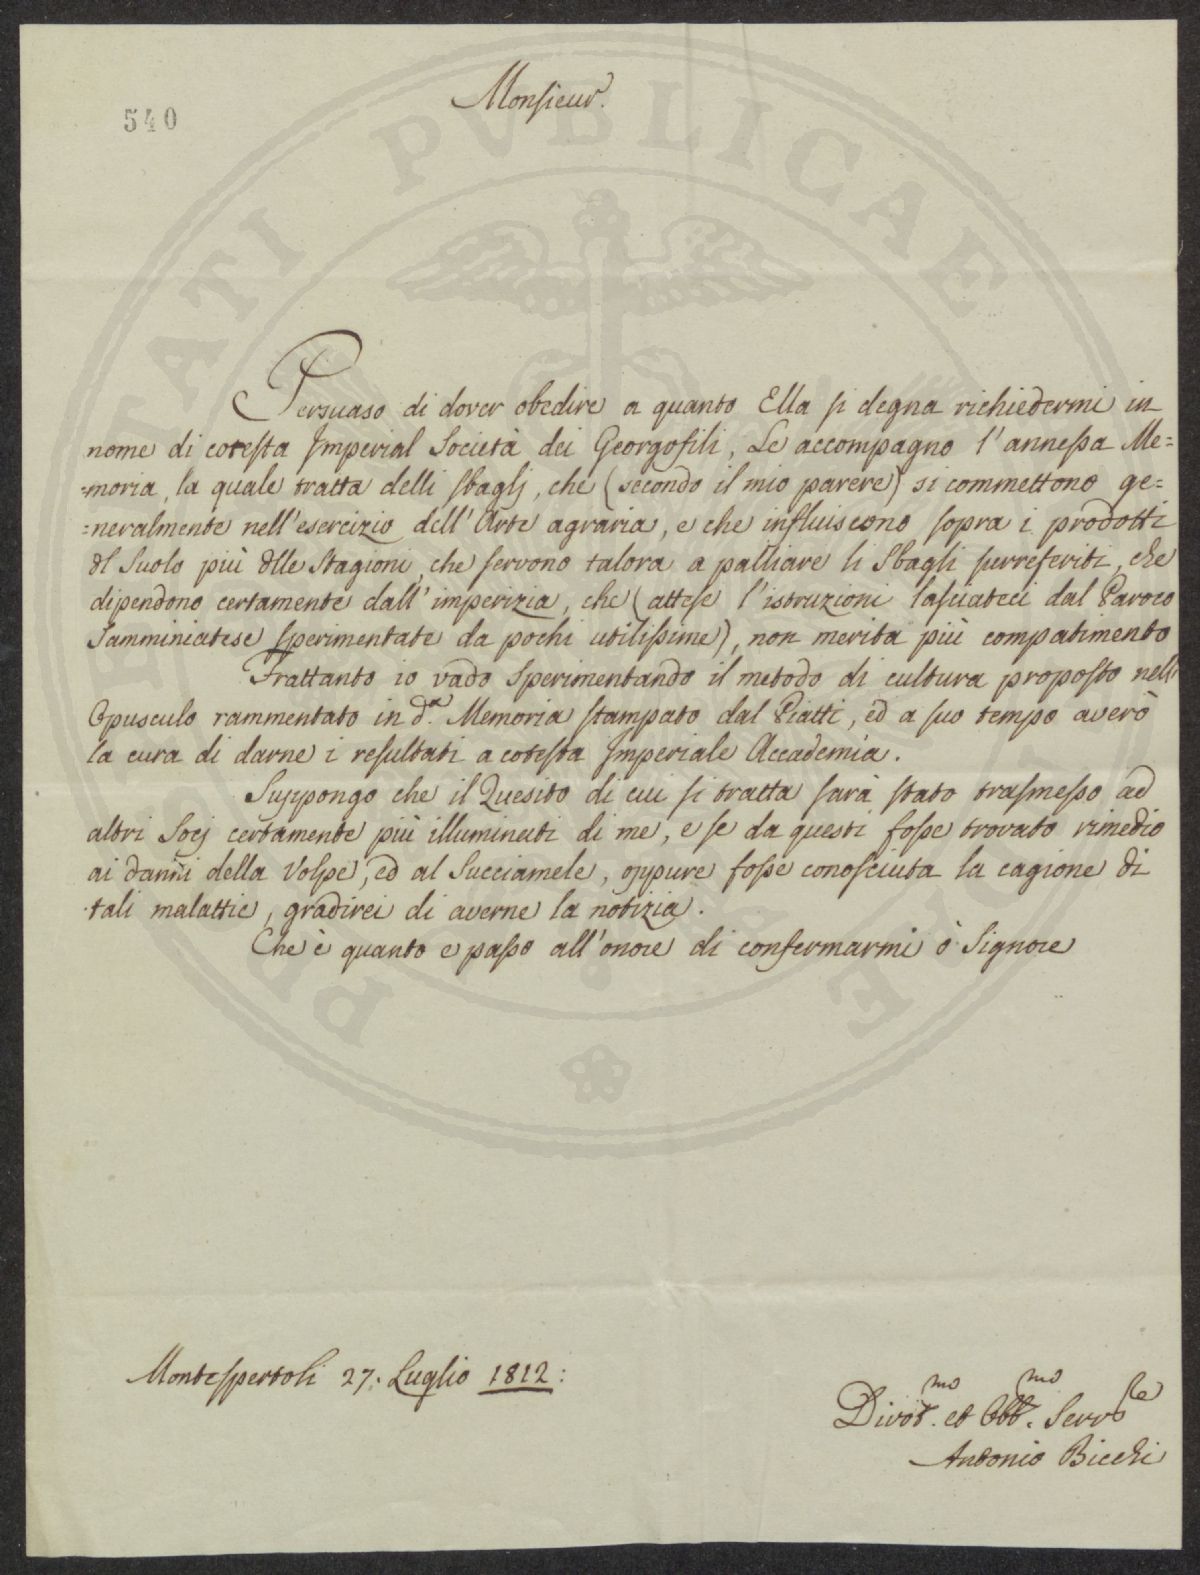 540
Monsieur.
Persuaso di dover obedire a quanto Ella si degna richiedermi in
nome di cotesta Imperial Società dei Georgofili, Le accompagno l'annessa Me=
=moria, la quale tratta delli sbaglj, che (secondo il mio parere) si commettono ge=
=neralmente nell'esercizio dell'Arte agraria, e che influiscono sopra i prodotti
dl Suolo più dlle Stagioni, che servono talora a palliare li Sbagli surreferiti, che
dipendono certamente dall'imperizia, che (attese l'istruzioni lasciateci dal Paroco
Samminiatese sperimentate da pochi utilissime), non merita più compatimento
Frattanto io vado sperimentando il metodo di cultura proposto nell
Opusculo rammentato in d.ª Memoria stampato dal Piatti, ed a suo tempo averò
la cura di darne i resultati a cotesta Imperiale Accademia.
Suppongo che il Quesito di cui si tratta sarà stato trasmesso ad
altri Socj certamente più illuminati di me, e se da questi fosse trovato rimedio
ai danni della Volpe, ed al Succiamele, oppure fosse conosciuta la cagione di
tali malattie, gradirei di averne la notizia.
Che è quanto e passo all'onore di confermarmi ò Signore
Montespertoli 27. Luglio 1812:
Divot.mo et Obb.mo Servre
Antonio Bicchi
PVPATI PVBLICAE